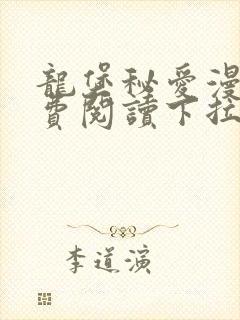 龍堡秘愛漫
費閱讀下拉
李道演